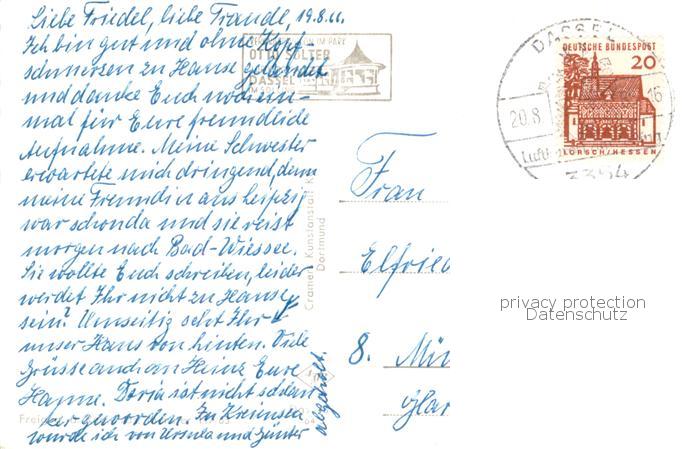 Liebe Friedel, liebe Traude, 19.8.66.
Ich bin gut und ohne Kopf-
schmerzen zu Hause gelandet
und danke Euch noch ein-
mal für Eure freundliche
Aufnahme. Meine Schwester
erwartete mich dringend, denn
meine Freundin aus Leipzig
war schon da und sie reist
morgen nach Bad-Wiessee.
Sie wollte Euch schreiben, leider
werdet Ihr nicht zu Hause
sein? Umseitig seht Ihr
unser Haus von hinten. Viele
Grüsse auch an Heinz Eure
Hanne. Doria ist nicht
geworden. In Kreiensen
wurde ich von Ursula und Günter
abgeholt.
IM PARK
OTTO
DASSEL
Cramers Kunstanstalt K
Dortmund
Frau
Elfried
8. Mün
Har
DASSEL
20.8.
16
Luft
3354
DEUTSCHE BUNDESPOST
20
LORSCH/HESSEN
privacy protection
Datenschutz